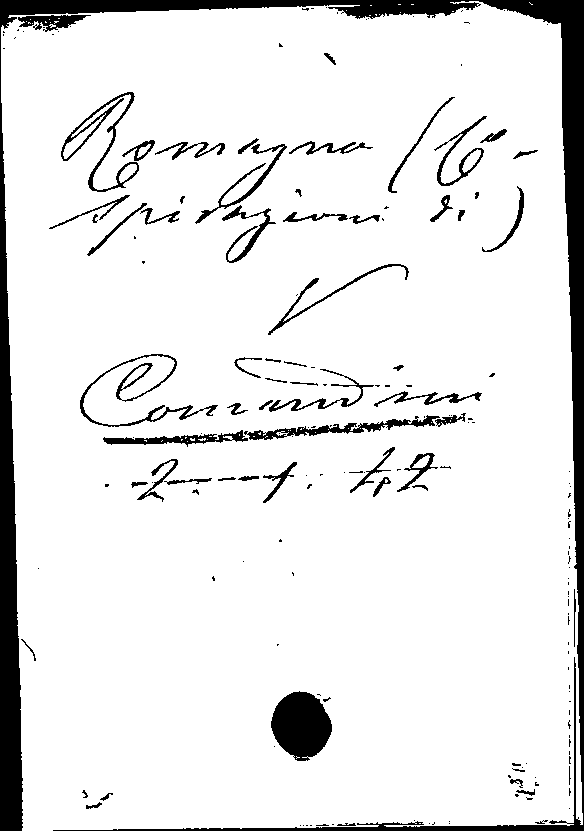 Romagna (Co-
spirazioni di)
V
Comandini
2. 1. 42